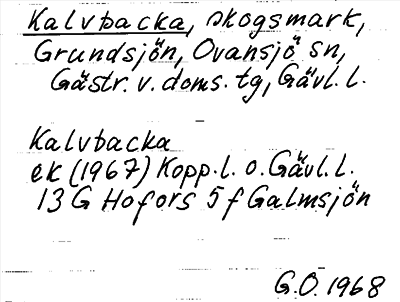 Kalvbacka, skogsmark,
Grundsjön, Ovansjö sn,
Gästr. v. doms. tg, Gävl. l.
Kalvbacka
ek (1967) Kopp. l. o. Gävl. l.
13 G Hofors 5 f Galmsjön
G.O. 1968